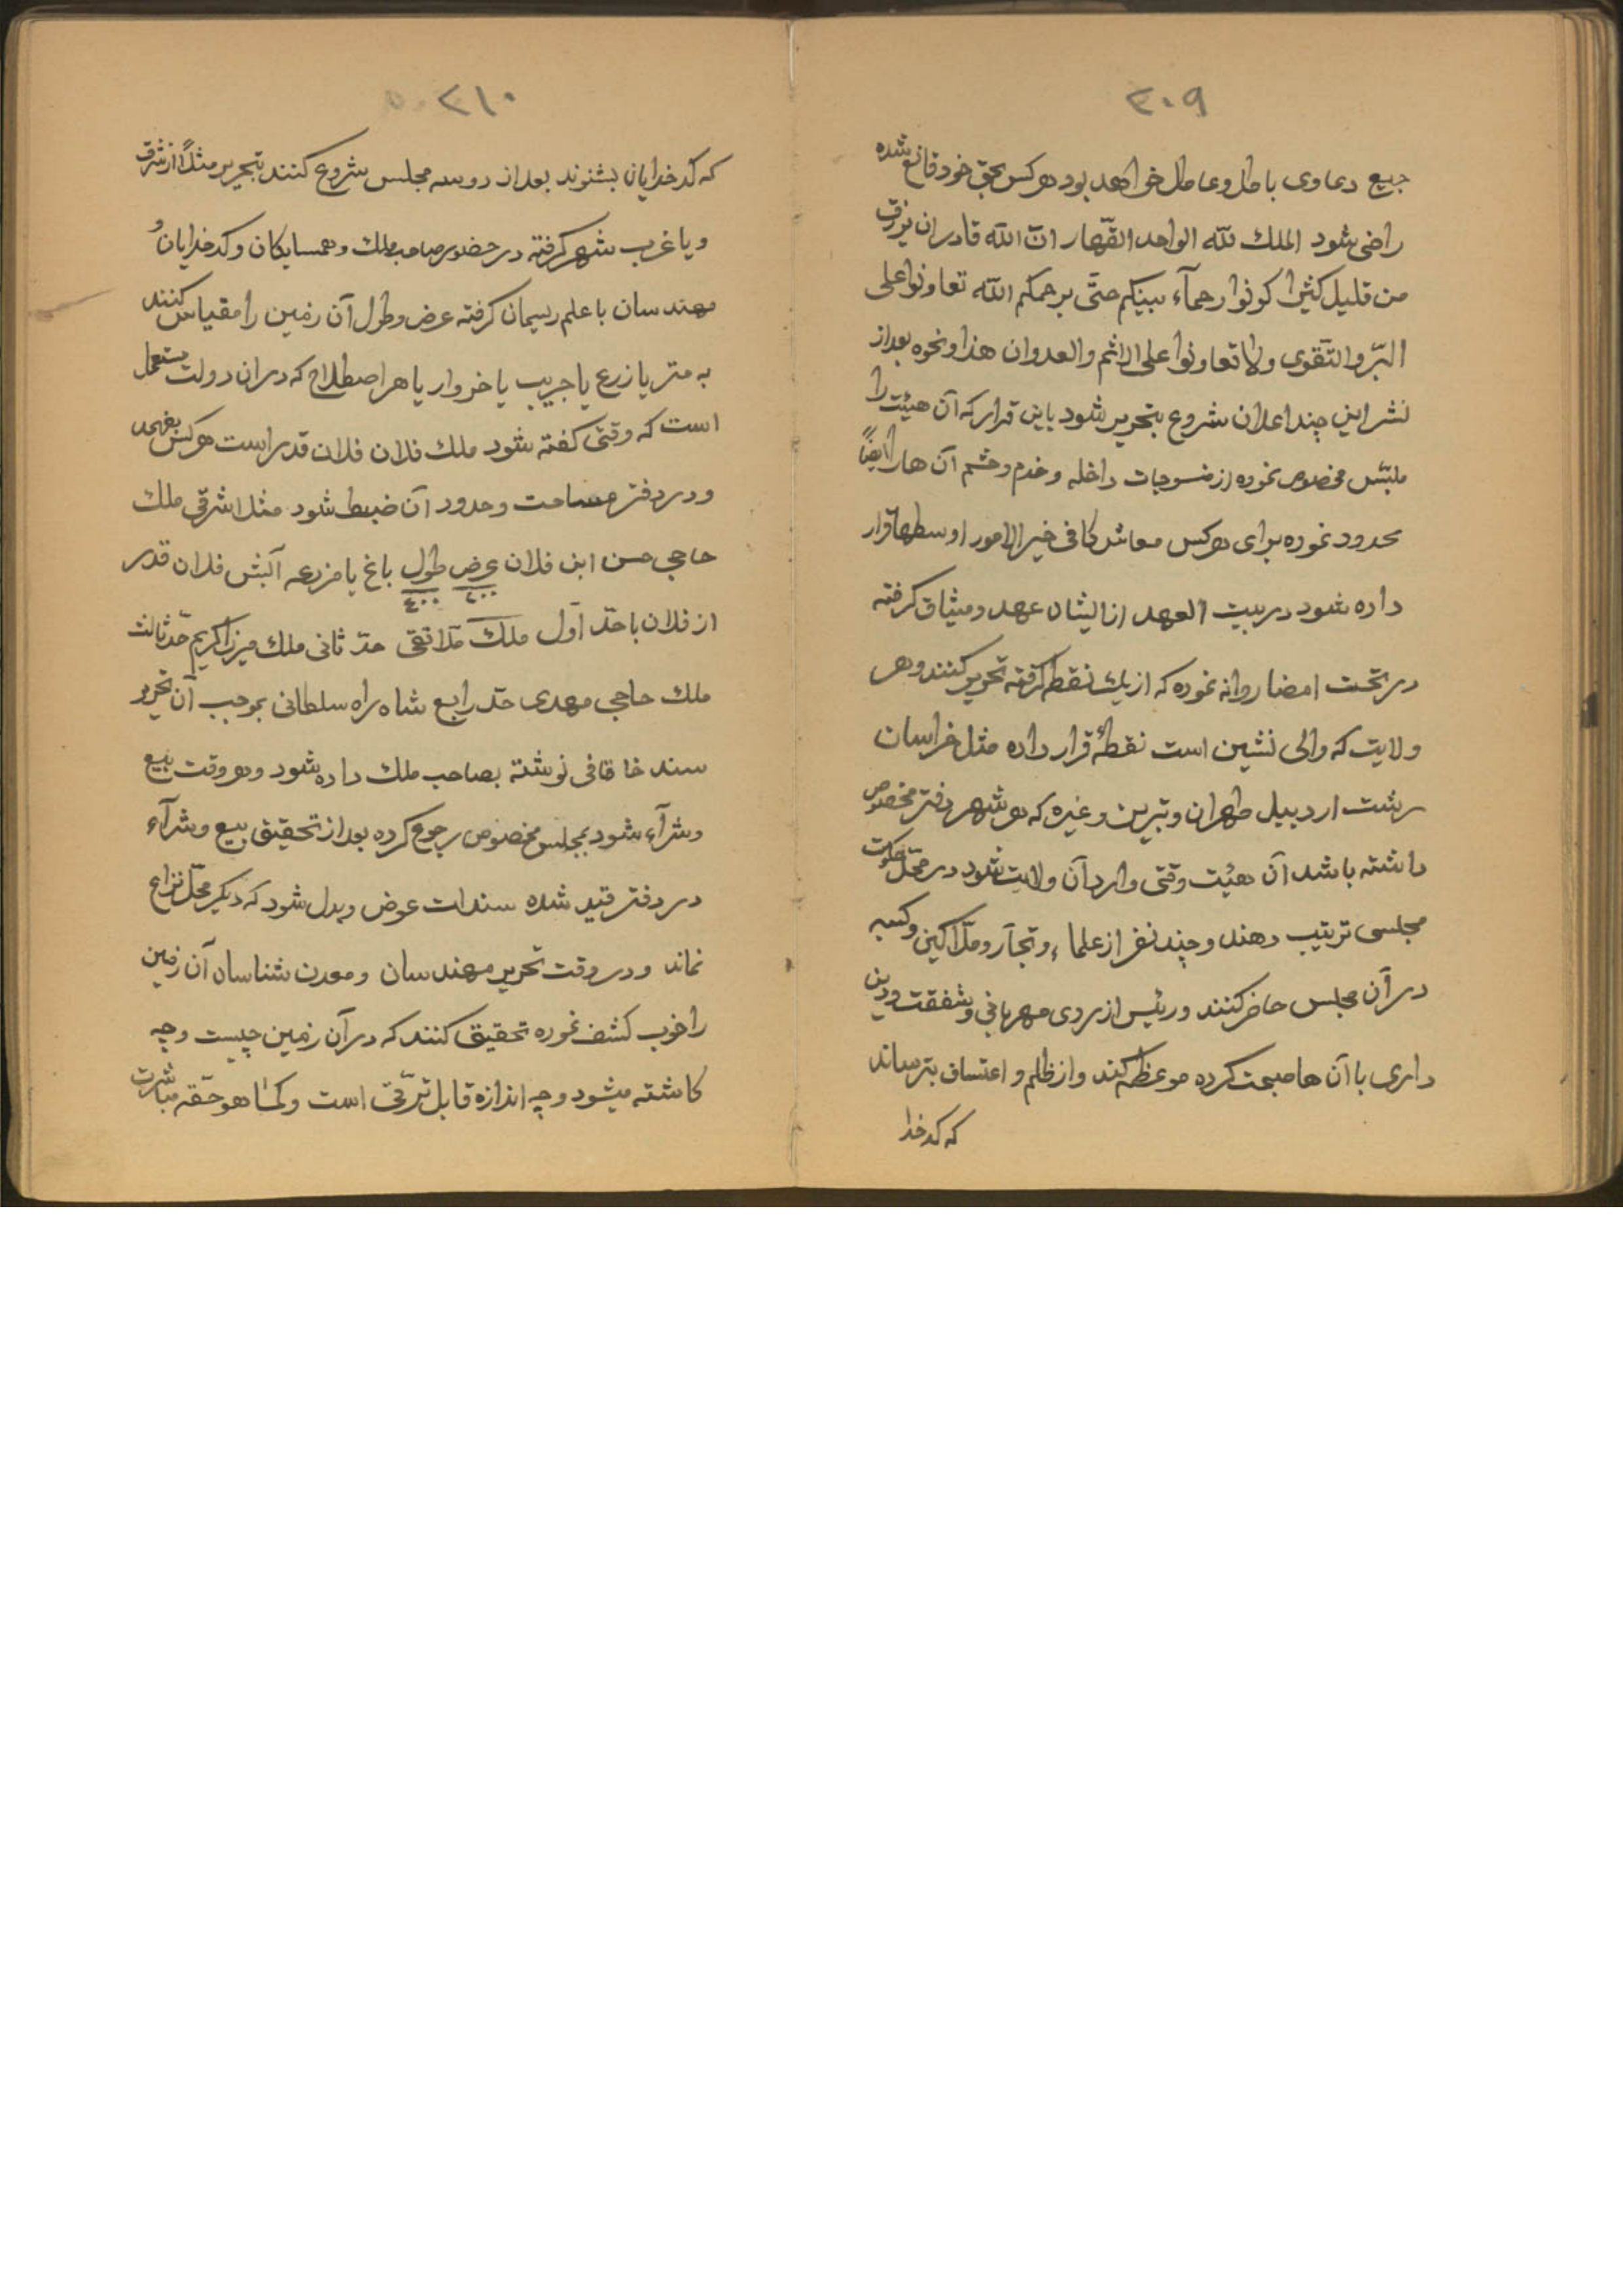 ۳۰۹
جمیع دعاوی باطل و عاطل خواهد بود هرکس بحق خود قانع شده
راضی شود الملك للّه الواحد القهّار انّ اللّه قادر ان یرزق
من قلیل کثیرا کونوا رحمآء بینکم حتّی یرحمکم اللّه تعاونوا علی
البرّ والتّقوی ولا تعاونوا علی الاثم والعدوان هذا ونحوه بعد از
نشر این چند اعلان شروع بتحریر شود باین قرار که آن هیئت را
ملبّس مخصوص نموده از منسوجات داخله و خدم و حشم آن هارا ایضاً
محدود نموده برای هرکس معاش کافی خیر الامور اوسطها قرار
داده شود در بیت العهد از ایشان عهد و میثاق گرفته
در تحت امضا روانه نموده که از یك نقطه گرفته تحریر کنند و هر
ولایت که والی نشین است نقطهٔ قرار داده مثل خراسان
رشت اردبیل طهران و تبریز و غیره که هر شهر دفتر مخصوص
داشته باشد آن هیئت وقتی وارد آن ولایت شود در محلّ حکومت
مجلسی ترتیب دهند و چند نفر از علماء و تجّار و ملّاکین و کسبه
در آن مجلس حاضر کنند و رئیس از روی مهربانی و شفقت و دین
داری با آن ها صحبت کرده موعظه کند و از ظلم و اعتساف بترساند
که کدخدا
۳۱۰
که کدخدایان بشنوند بعد از دو سه مجلس شروع کنند بتحریر مثلاً از شرق
و یا غرب شهر گرفته در حضور صاحب ملك و همسایکان و کدخدایان و
مهندسان با علم ریسمان گرفته عرض و طول آن زمین را مقیاس کنند
به متر یا زرع یا جریب یا خروار یا هر اصطلاح که در ان دولت مستعمل
است که وقتی گفته شود ملك فلان فلان قدر است هرکس بفهمد
و در دفتر مساحت و حدود آن ضبط شود مثل اشرقی ملك
حاجی حسن ابن فلان عرض طول باغ یا مزرعه آبش فلان قدر
۲۰۰ ۴۰۰
از فلان با حدّ اوّل ملك ملّا تقی حدّ ثانی ملك میرزا کریم حدّ ثالث
ملك حاجی مهدی حدّ رابع شاه راه سلطانی بموجب آن تحریر
سند خاقانی نوشته بصاحب ملك داده شود و هر وقت بیع
و شرآء شود بمجلس مخصوص رجوع کرده بعد از تحقیق بیع و شرآء
در دفتر قید شده سندات عوض و بدل شود که دیکر محلّ نزاع
نماند و در وقت تحریر مهندسان و معدن شناسان آن زمین
را خوب کشف نموده تحقیق کنند که در آن زمین چیست و چه
کاشته میشود و چه اندازه قابل ترقّی است و کما هو حقّه مباشرت